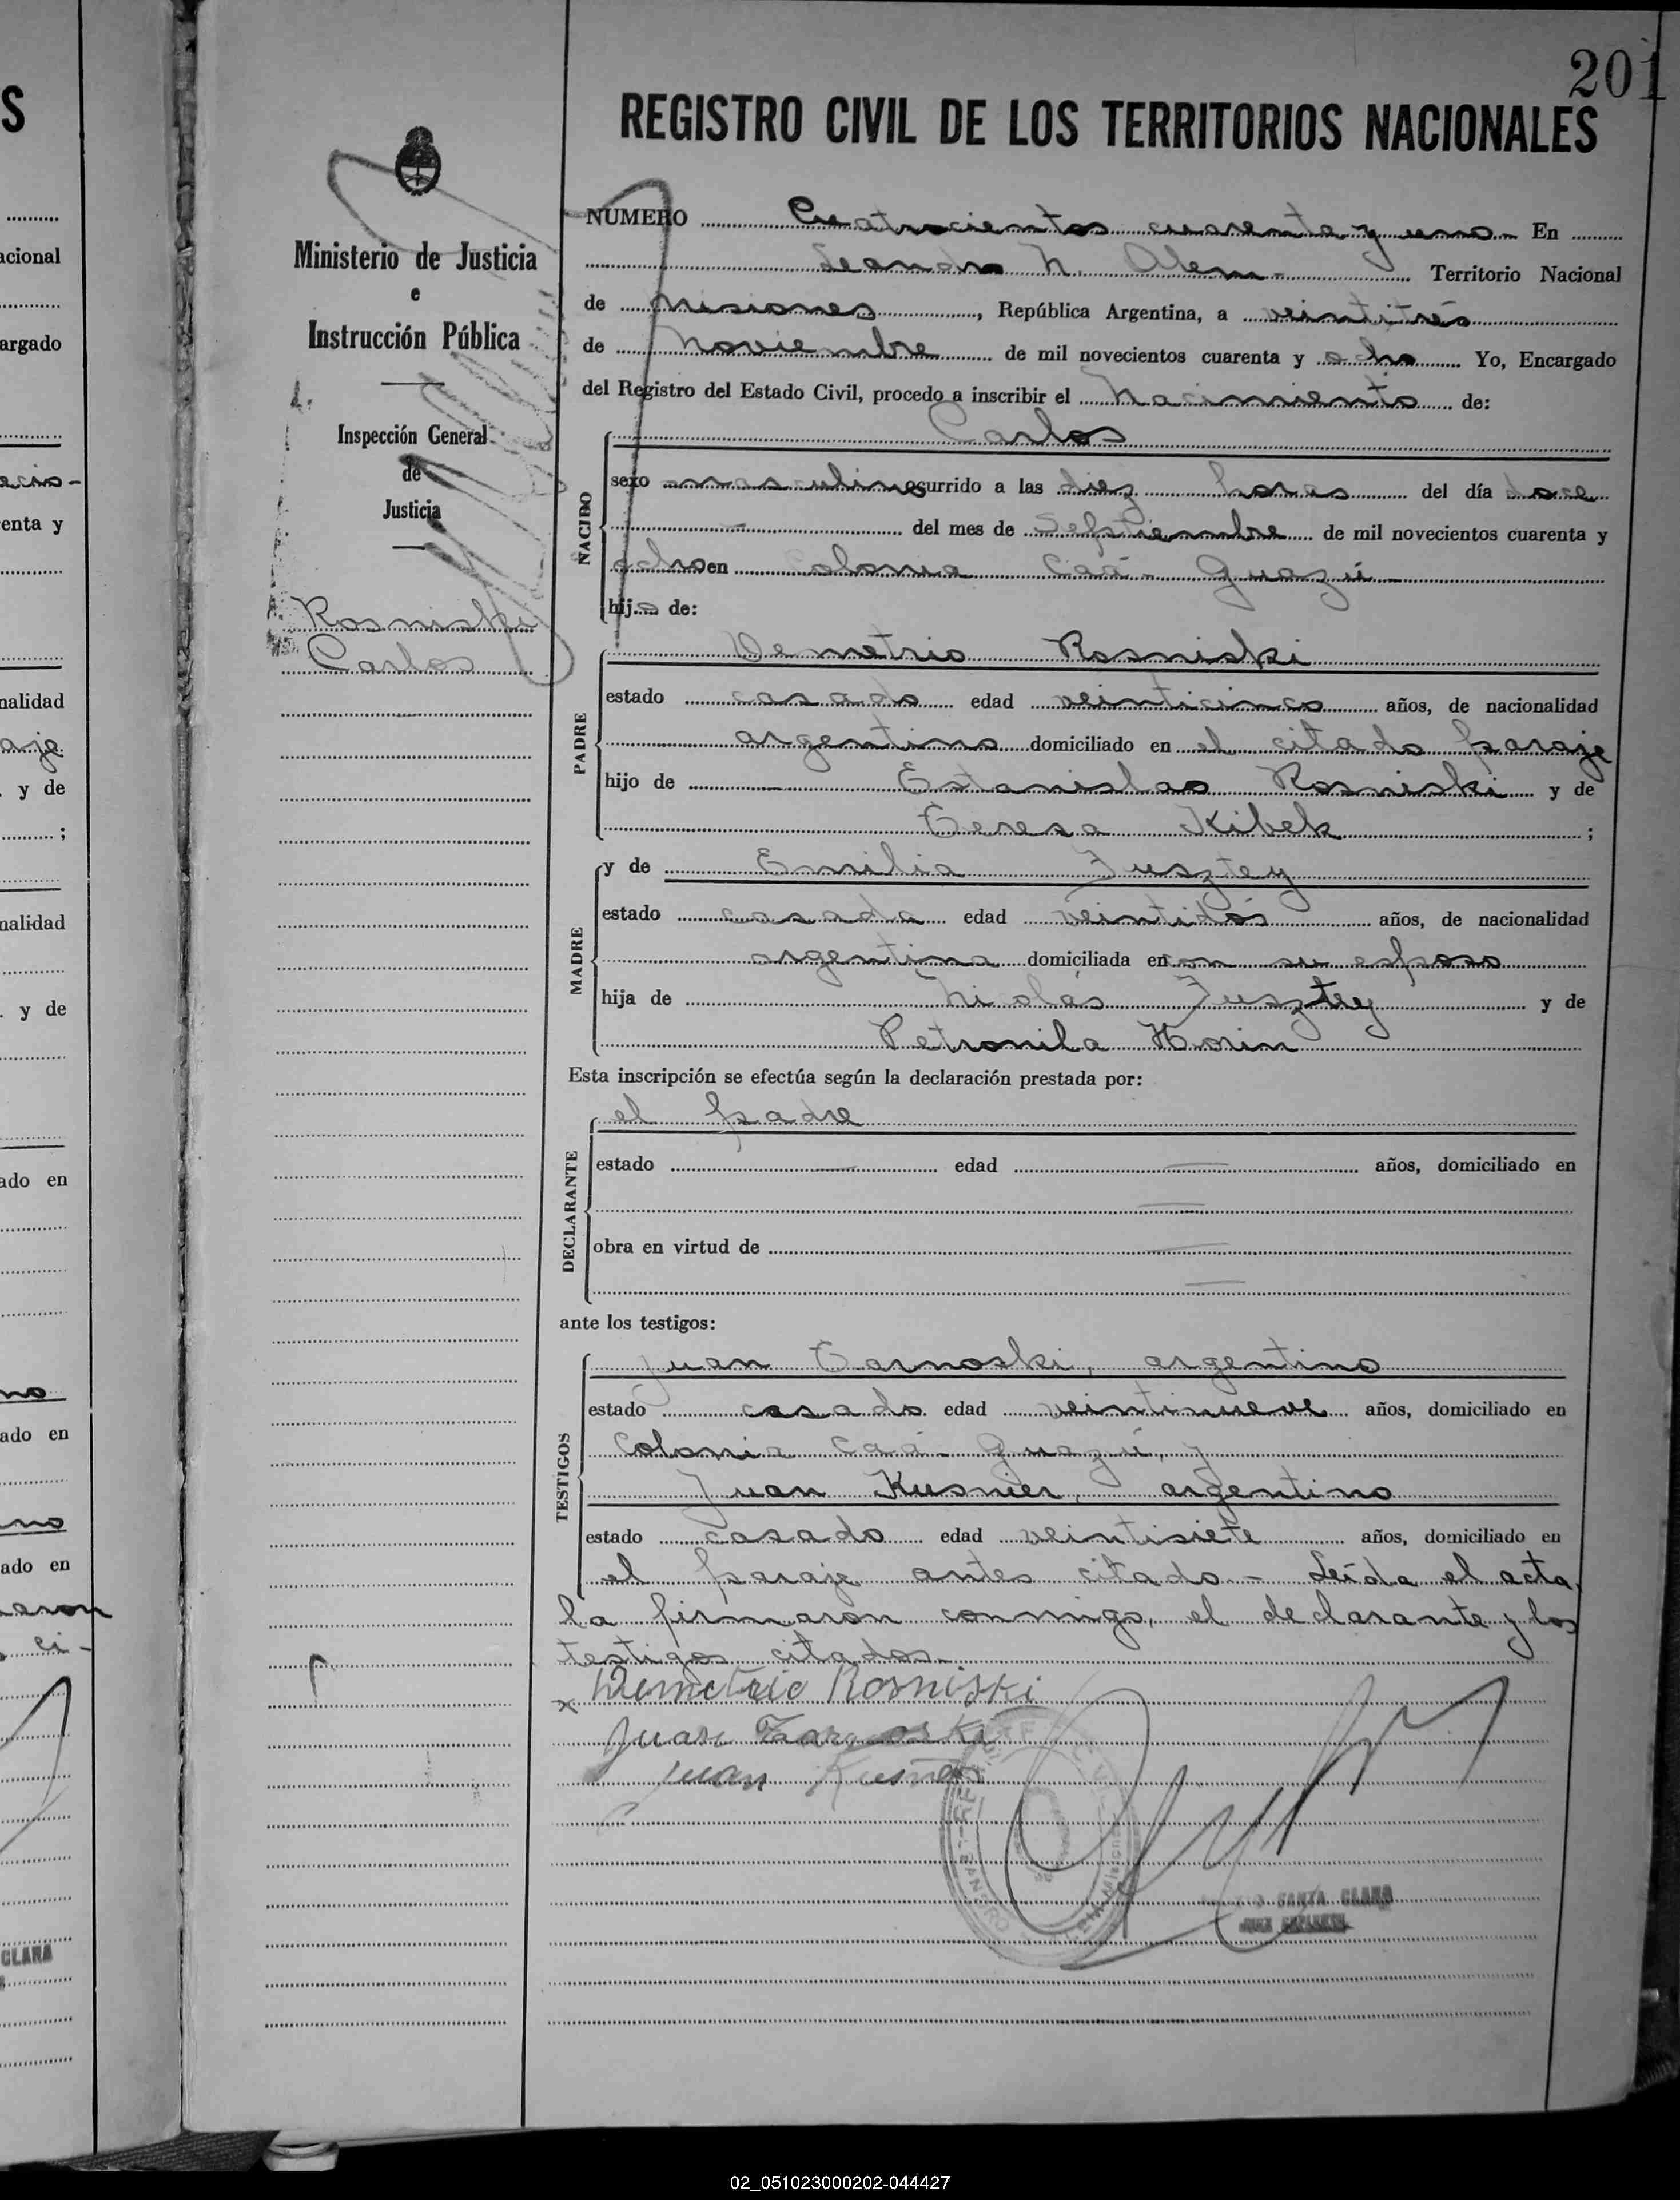 201
REGISTRO CIVIL DE LOS TERRITORIOS NACIONALES
Ministerio de Justicia
e
Instrucción Pública
Inspección General
de
Justicia
Rosniski
Carlos
NUMERO Cuatrocientos cuarenta y uno - En
Leandro N. Alem - Territorio Nacional
de Misiones, República Argentina, a veintitrés
de Noviembre de mil novecientos cuarenta y ocho Yo, Encargado
del Registro del Estado Civil, procedo a inscribir el Nacimiento de:
Carlos
NACIDO
sexo masculino ocurrido a las diez horas del día doce
del mes de Septiembre de mil novecientos cuarenta y
ocho en Colonia Caá-Guazú -
hijo de:
PADRE
Demetrio Rosniski
estado casado edad veinticinco años, de nacionalidad
argentino domiciliado en el citado paraje
hijo de Estanislao Rosniski y de
Teresa Kibek ;
MADRE
y de Emilia Jusztey
estado casada edad veintidós años, de nacionalidad
argentina domiciliada en con su esposo
hija de Nicolás Jusztey y de
Petronila Horin
Esta inscripción se efectúa según la declaración prestada por:
DECLARANTE
el padre
estado — edad — años, domiciliado en
—
obra en virtud de —
—
ante los testigos:
TESTIGOS
Juan Tarnoski, argentino
estado casado edad veintinueve años, domiciliado en
Colonia Caá-Guazú, y
Juan Kusnier, argentino
estado casado edad veintisiete años, domiciliado en
el paraje antes citado - Leída el acta,
la firmaron conmigo, el declarante y los
testigos citados.-
x Demetrio Rosniski
Juan Tarnoski
Juan
SANTA CLARA
JUEZ SUPLENTE
S
acional
argado
enta y
nalidad
aje
. y de
;
nalidad
. y de
ado en
no
ado en
no
ado en
aron
ci-
CLARA
02_051023000202-044427